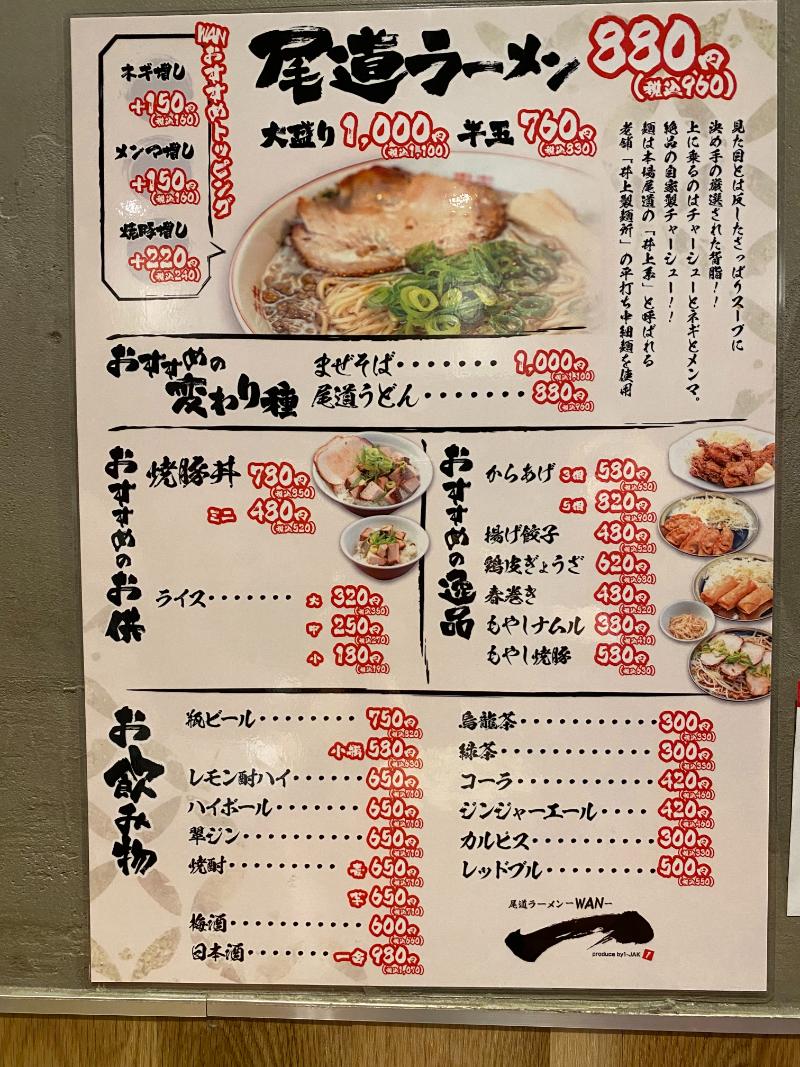 尾道ラーメン 880円(税込960)
大盛り 1,000円(税込1,100) 半玉 760円(税込830)
WANおすすめトッピング
ネギ増し
+150円(税込160)
メンマ増し
+150円(税込160)
焼豚増し
+220円(税込240)
見た目とは反したさっぱりスープに
決め手の厳選された背脂!!
上に乗るのはチャーシューとネギとメンマ。
絶品の自家製チャーシュー!!
麺は本場尾道の「井上系」と呼ばれる
老舗「井上製麺所」の平打ち中細麺を使用
おすすめの
変わり種
まぜそば・・・・・・・・ 1,000円(税込1,100)
尾道うどん・・・・・・・ 880円(税込960)
おすすめのお供
焼豚丼 780円(税込850)
ミニ 480円(税込520)
ライス・・・・・・・ 大 320円(税込350)
中 250円(税込270)
小 180円(税込190)
おすすめの逸品
からあげ 3個 580円(税込630)
5個 820円(税込900)
揚げ餃子 480円(税込520)
鶏皮ぎょうざ 620円(税込680)
春巻き 480円(税込520)
もやしナムル 380円(税込410)
もやし焼豚 580円(税込630)
お飲み物
瓶ビール・・・・・・・・ 750円(税込820)
小瓶 580円(税込630)
レモン酎ハイ・・・・・ 650円(税込710)
ハイボール・・・・・・・ 650円(税込710)
翠ジン・・・・・・・・・・ 650円(税込710)
焼酎・・・・・・・・・ 麦 650円(税込710)
芋 650円(税込710)
梅酒・・・・・・・・・・・ 600円(税込660)
日本酒・・・・・・・ 一合 980円(税込1,070)
烏龍茶・・・・・・・・・・・ 300円(税込330)
緑茶・・・・・・・・・・・・ 300円(税込330)
コーラ・・・・・・・・・・・ 420円(税込460)
ジンジャーエール・・・・ 420円(税込460)
カルピス・・・・・・・・・・ 300円(税込330)
レッドブル・・・・・・・・・ 500円(税込550)
尾道ラーメン－WAN－
一
produce by1-JAK 1